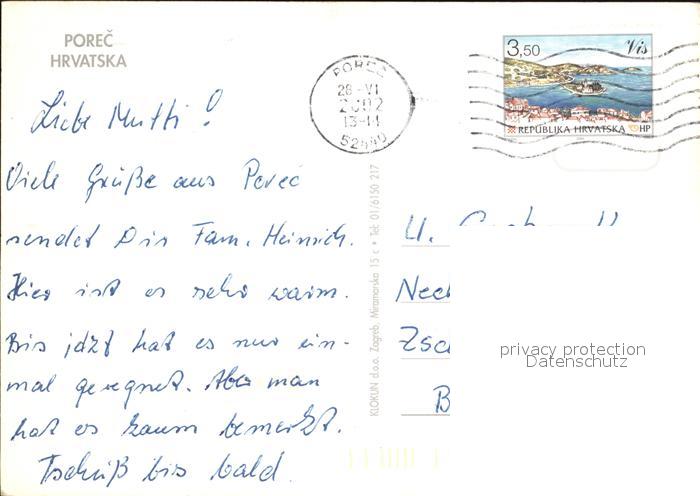 POREČ
HRVATSKA
POREČ
28-VI
2002
13-14
52440
3,50
Vis
REPUBLIKA HRVATSKA HP
Liebe Mutti!
Viele Grüße aus Poreč
sendet Dir Fam. Heinrich.
Hier ist es sehr warm.
Bis jetzt hat es nur ein-
mal geregnet. Aber man
hat es kaum bemerkt.
Tschüß bis bald.
KLOKUN d.o.o. Zagreb, Miramarska 15 c • Tel: 01/6150 217
privacy protection
Datenschutz